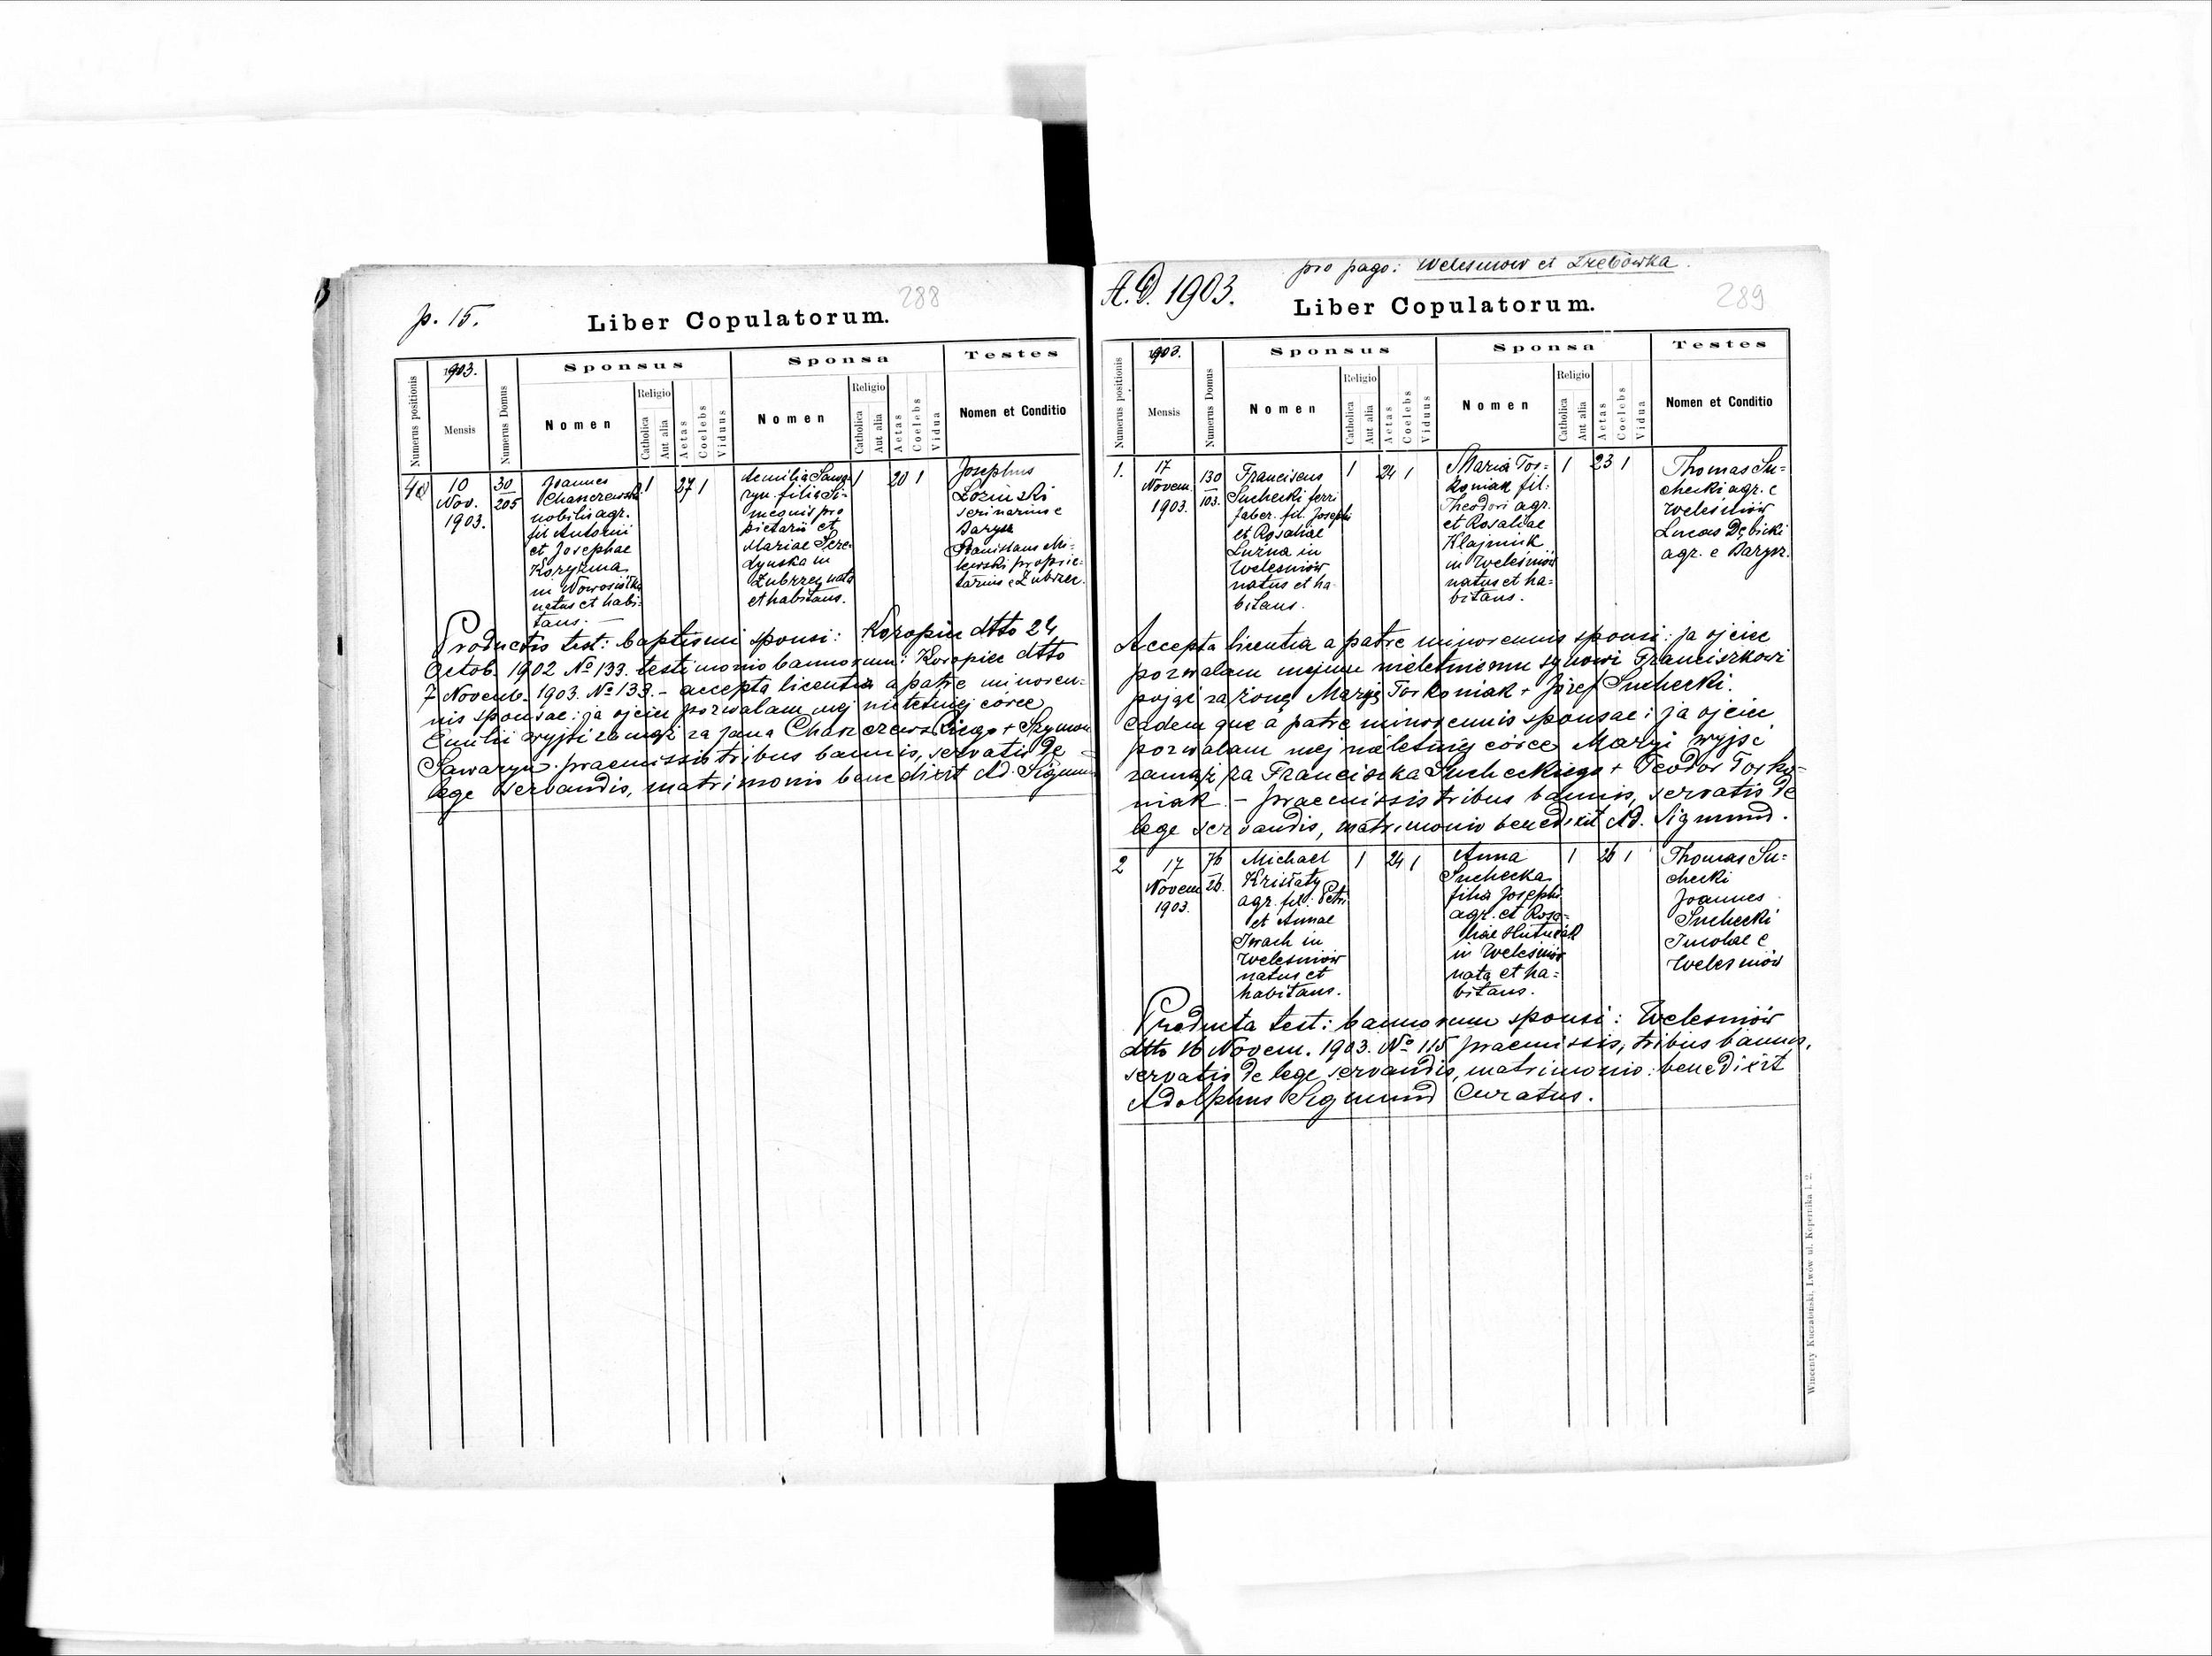 288
p. 15.
Liber Copulatorum.
Numerus positionis
1903.
Mensis
Numerus Domus
Sponsus
Nomen
Religio
Catholica
Aut alia
Aetas
Coelebs
Viduus
Sponsa
Nomen
Religio
Catholica
Aut alia
Aetas
Coelebs
Vidua
Testes
Nomen et Conditio
10
Nov.
1903.
30
205
Joannes
nobilis agr.
fil Antonii
et Josephae
in Nowosiółka
natus et habi-
tans. —
1
27 1
Aemilia
ryn. filia Si-
meonis pro
pietarii et
Mariae Sere-
dynska in
Zubrzec nata
et habitans.
1
20 1
Josephus
Łozinski
e
Barysz
Stanislaus Mi-
lewski proprie-
tarius e Zubrzec.
Productis test: baptismi sponsi: Koropiec dtto 24
Octob. 1902 No 133. testimonio bannorum: Koropiec dtto
7 Novemb. 1903. No 133. - accepta licentia a patre minoren-
nis sponsae: ja ojciec pozwalam mej nieletniej córce
Emilii wyjść za mąż za Jana Charczewskiego + Szymon
Sawaryn. praemissis tribus bannis, servatis de
lege servandis, matrimonio benedixit Ad. Sigmund
A.D. 1903.
pro pago: Welesniow et Trebowka.
289
Liber Copulatorum.
Numerus positionis
1903.
Mensis
Numerus Domus
Sponsus
Nomen
Religio
Catholica
Aut alia
Aetas
Coelebs
Viduus
Sponsa
Nomen
Religio
Catholica
Aut alia
Aetas
Coelebs
Vidua
Testes
Nomen et Conditio
1.
17
Novem.
1903.
130
103.
Franciscus
Suchecki ferri
faber. fil. Josephi
et Rosaliae
Luźna in
Welesniów
natus et ha-
bitans.
1
24 1
Maria Tos-
koniak fil.
Theodori agr.
et Rosaliae
Klajmiuk
in Welesniów
natus et ha-
bitans.
1
23 1
Thomas Su-
checki agr. e
Welesniów
Lucas Dębicki
agr. e Barysz.
Accepta licentia a patre minorennis sponsi: ja ojciec
pozwalam mojemu nieletniemu synowi Franciszkowi
pojąć za żonę Maryę Toskoniak + Józef Suchecki.
eademque a patre minorennis sponsae: ja ojciec
pozwalam mej nieletniej córce Maryi wyjść
zamąż za Franciszka Sucheckiego + Teodor Tosko-
niak. - praemissis tribus bannis, servatis de
lege servandis, matrimonio benedixit Ad. Sigmund.
2
17
Novem
1903.
76
26.
Michael
Krisłaty
agr. fil. Petri
et Annae
Iwach in
Welesniów
natus et
habitans.
1
24 1
Anna
Suchecka
filia Josephi
agr. et Rosa-
liae Hutniak
in Welesniów
nata et ha-
bitans.
1
26 1
Thomas Su-
checki
Joannes
Suchecki
Incolae e
Welesniów
Producta test: bannorum sponsi: Welesniów
dtto 16 Novem. 1903. No 115 praemissis, tribus bannis,
servatis de lege servandis, matrimonio: benedixit
Adolphus Sigmund Curatus.
Wincenty Kuczabiński, Lwów ul. Kopernika l. 2.